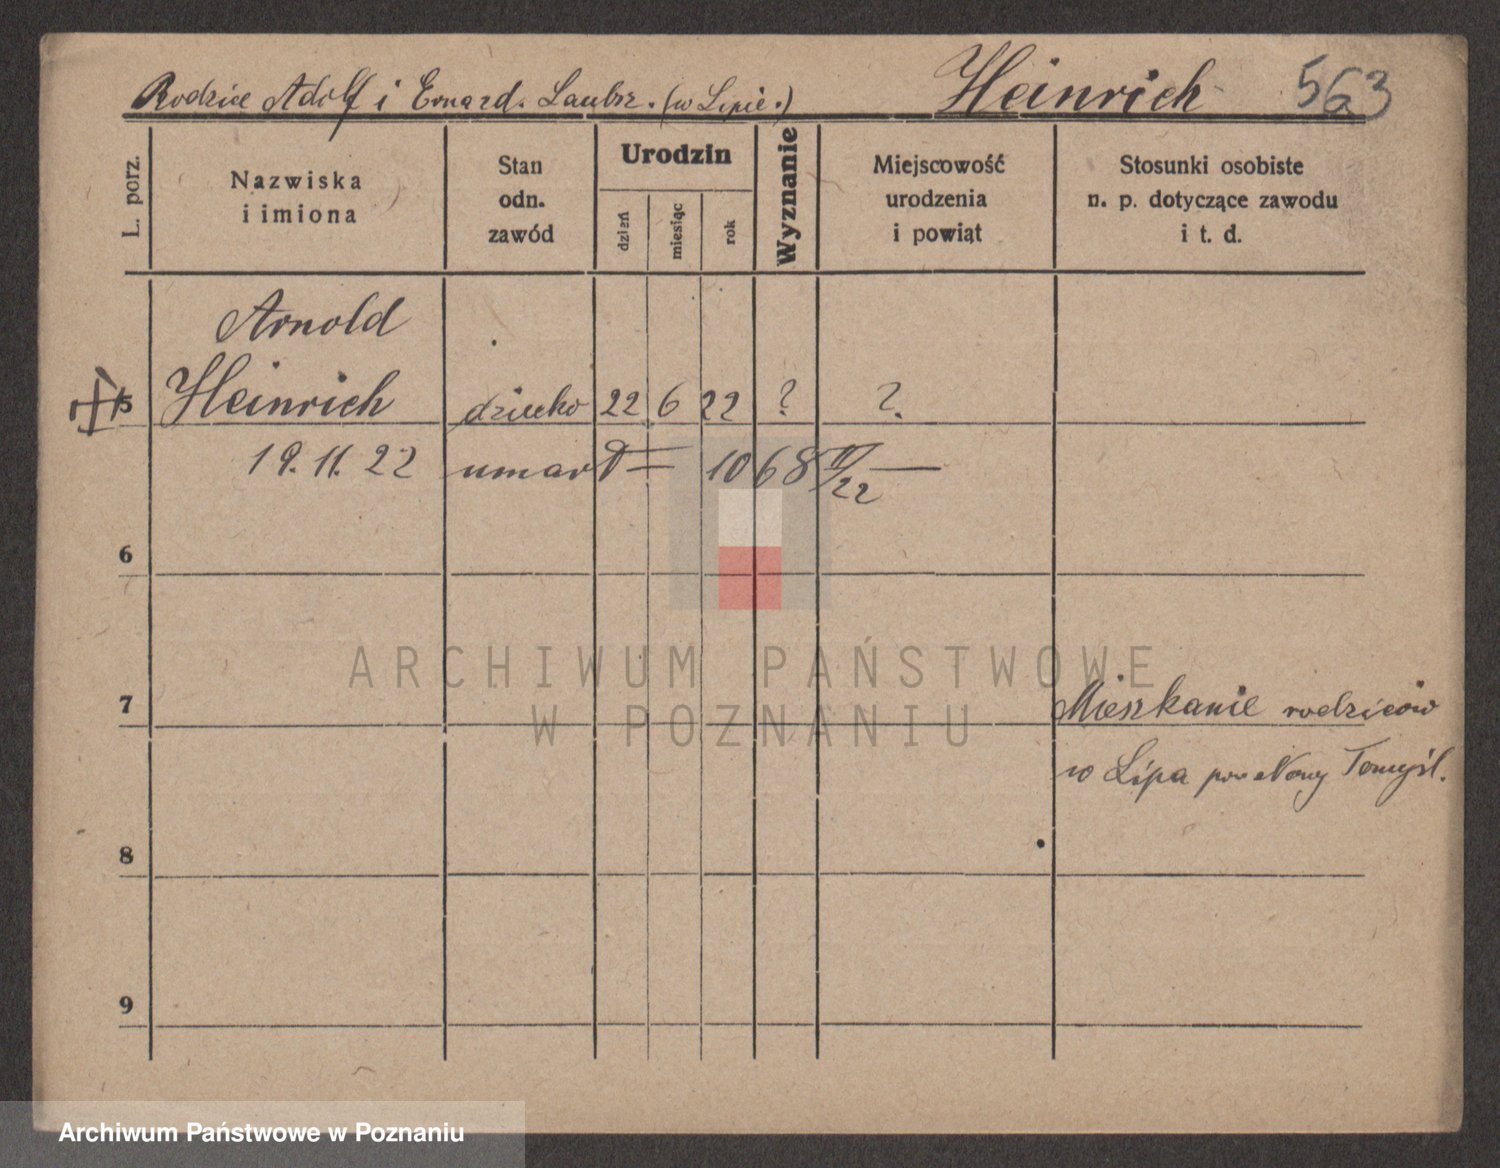 Rodzice Adolf i Laubsz. (w Lipie.) Heinrich 563
L. porz.
Nazwiska
i imiona
Stan
odn.
zawód
Urodzin
dzień
miesiąc
rok
Wyznanie
Miejscowość
urodzenia
i powiąt
Stosunki osobiste
n. p. dotyczące zawodu
i t. d.
Arnold
5 Heinrich dziecko 22 6 22 ? ?
19.11.22 umarł 1068 /22
6
7 Mieszkanie rodziców
w Lipa pow Nowy Tomyśl.
8
9
ARCHIWUM PAŃSTWOWE
W POZNANIU
Archiwum Państwowe w Poznaniu